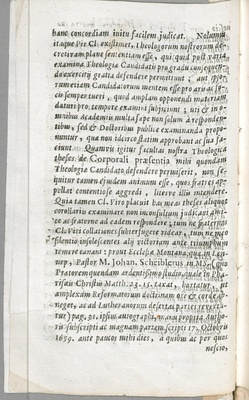 hanc concordiam initu facilem judicat. Nolumus
itaque Vir Cl. existimet, Theologorum nostrorum de-
cretivam plane sententiam esse, qui, quod post varia
examina Theologia Candidatis pro gradu consequen-
do exercitii gratia defendere permittunt; aut
rum etiam Candidatorum mentem esse pro aris ac fo-
cis semper tueri, quod amplam opponendi materiam
daturi pro tempore examini subjiciunt; ut &
nibus Academiis multa sæpe non solum à responden-
tibus, sed & Doctoribus publice examinanda propo-
nuntur, qua non ideo statim approbant ac sua fa-
ciunt. Quamvis igitur facultas nostra Theologica
theses de Corporali præsentia mihi quondam
Theologia Candidato defendere permiserit, non se-
quitur tamen ejusdem animum esse, quos fratres ap-
pellat contentiose aggredi, litere illi intendere.
Quia tamen Cl. Viro placuit has meas theses aliquot
corollariis examinare non inconsultum judicavi ami-
ce ac fraterne ad eadem respondere; tum ne
Cl. Viri collationes subterfugere videar, tum ne meo
silentio insolescentes alii victoriam ante triumphum
temere canant: prout Ecclesia Montana, quæ in Len-
nep, Pastor M. Johan. Scheiblerus in MS. Quo
Fratorem quendam ardentissimo studio, quale in Pha-
risæis Christus Matth. 23. 15. taxat, hortatur, ut
amplexam Reformatorum doctrinam ore & corde
neget, ac ad Lutheranorum desertas partes reverta-
tur) pag. 31. ipsius autographi, manu propria Autho-
ris subscripti ac magnam partem scripti 17. Octobris
1659. ante paucos mihi dies, à quibus ac per quos
nescio,